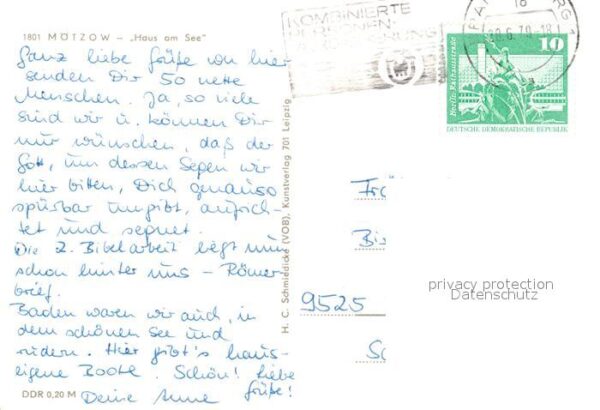 1801 MÖTZOW – „Haus am See"
Ganz liebe Grüße von hier
senden Dir 50 nette
Menschen. Ja, so viele
sind wir u. können Dir
nur wünschen, daß der
Gott, um dessen Segen wir
hier bitten, Dich genauso
spürbar umgibt, aufrich-
tet und segnet.
Die 2. Bibelarbeit liegt nun
schon hinter uns – Römer-
brief.
Baden waren wir auch, in
dem schönen See und
rudern. Hier gibt's haus-
eigene Boote. Schön! Liebe
Grüße!
Deine Anne
DDR 0,20 M
H. C. Schmiedicke (VOB), Kunstverlag 701 Leipzig
KOMBINIERTE
PERSONEN-
18
10
Berlin, Rathausstraße
DEUTSCHE DEMOKRATISCHE REPUBLIK
9525
privacy protection
Datenschutz